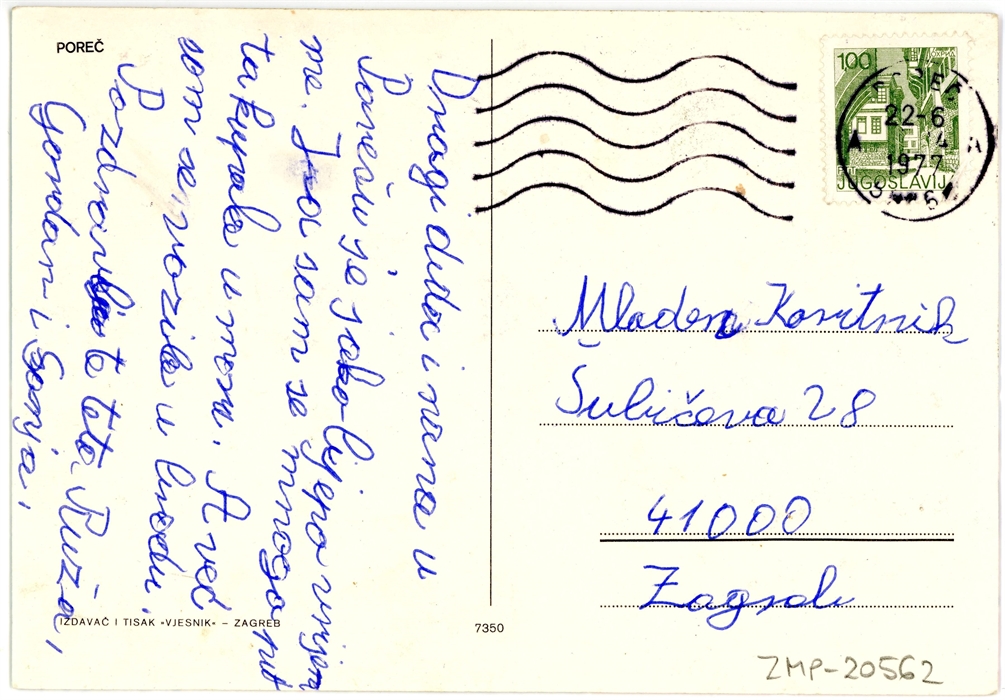 POREČ
Dragi dida i nana u
Poreču je jako lijepo vrijem
me. Ja sam se mnogo put
ta kupala u moru. A već
sam se vozila u brodu.
Pozdravlja te teta Ruža,
Gordan i Sanja.
IZDAVAČ I TISAK »VJESNIK« – ZAGREB
7350
100
JUGOSLAVIJA
22-6
1977
A A
Mladen Koritnik
Šubičeva 28
41000
Zagreb
ZMP-20562